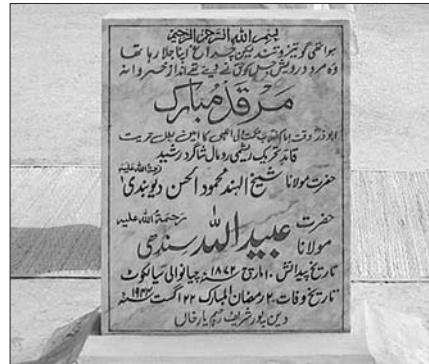 بسم اللہ الرحمن الرحیم
ہوا تھی گو تیز و تند لیکن چراغ اپنا جلا رہا تھا
وہ مرد درویش جس کو حق نے دیئے تھے انداز خسروانہ
مرقد مبارک
ابوذر وقت امام انقلاب حکمت ولی اللہی کا امین
قائد تحریک ریشمی رومال شاگرد رشید
حضرت مولانا شیخ الہند محمود الحسن دیوبندی رحمۃ اللہ علیہ
حضرت مولانا عبید اللہ سندھی رحمۃ اللہ علیہ
تاریخ پیدائش ۱۰ مارچ ۱۸۷۲ چیانوالی سیالکوٹ
تاریخ وفات ۲ رمضان المبارک ۲۲ اگست ۱۹۴۴
دین پور شریف رحیم یار خاں